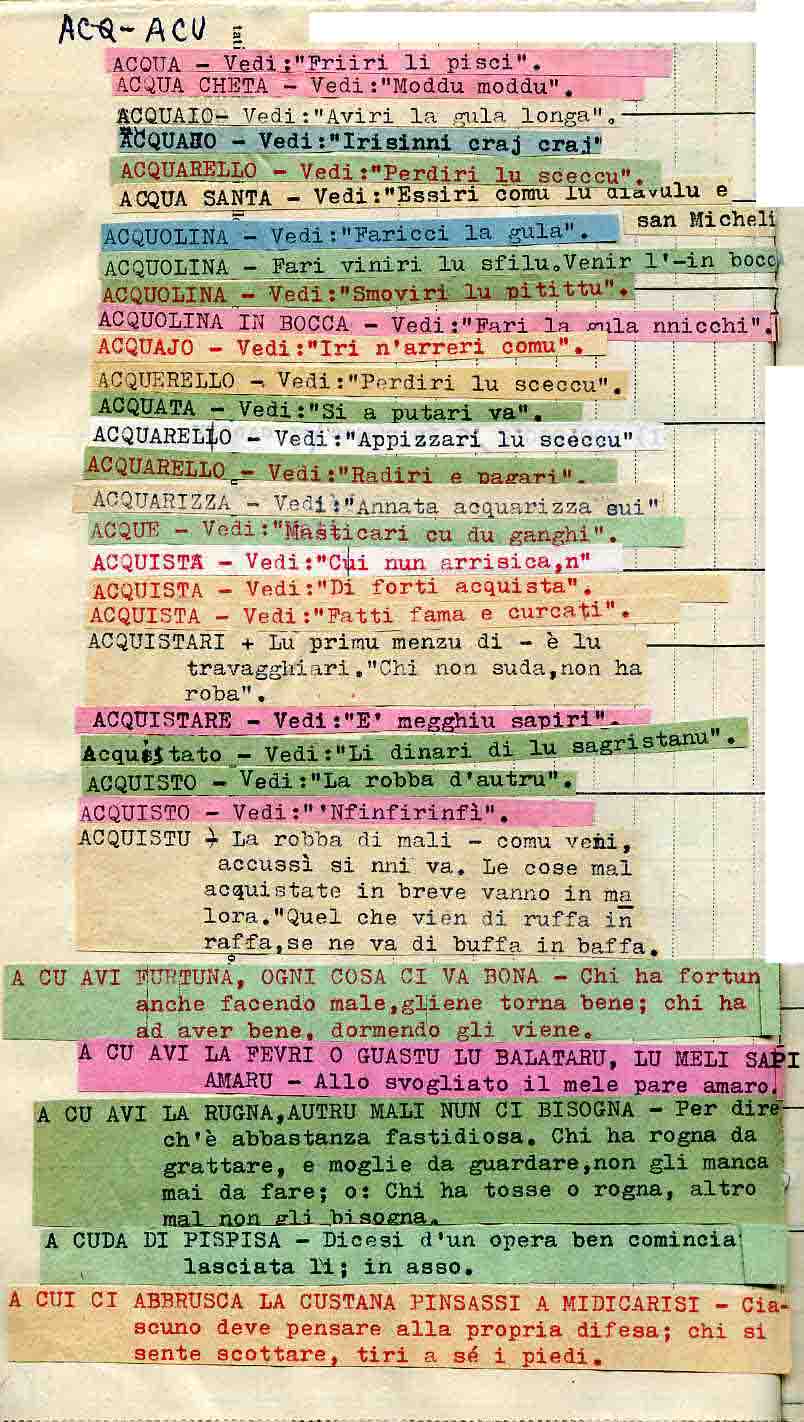 ACQ-ACU
tati
ACQUA - Vedi:"Friiri li pisci".
ACQUA CHETA - Vedi:"Moddu moddu".
ACQUAIO- Vedi:"Aviri la gula longa".
ACQUANO - Vedi:"Irisinni craj craj"
ACQUARELLO - Vedi:"Perdiri lu sceccu".
ACQUA SANTA - Vedi:"Essiri comu lu diavulu e
san Micheli
ACQUOLINA - Vedi:"Faricci la gula".
ACQUOLINA - Fari viniri lu sfilu.Venir l'-in bocc
ACQUOLINA - Vedi:"Smoviri lu pitittu".
ACQUOLINA IN BOCCA - Vedi:"Fari la gula nnicchi".
ACQUAJO - Vedi:"Iri n'arreri comu".
ACQUERELLO - Vedi:"Perdiri lu sceccu".
ACQUATA - Vedi:"Si a putari va".
ACQUARELLO - Vedi:"Appizzari lu sceccu"
ACQUARELLO - Vedi:"Radiri e pagari".
ACQUARIZZA - Vedi:"Annata acquarizza sui"
ACQUE - Vedi:"Masticari cu du ganghi".
ACQUISTA - Vedi:"Cui nun arrisica,n"
ACQUISTA - Vedi:"Di forti acquista".
ACQUISTA - Vedi:"Fatti fama e curcati".
ACQUISTARI + Lu primu menzu di - è lu
travagghiari."Chi non suda,non ha
roba".
ACQUISTARE - Vedi:"E' megghiu sapiri".
Acquistato - Vedi:"Li dinari di lu sagristanu".
ACQUISTO - Vedi:"La robba d'autru".
ACQUISTO - Vedi:"'Nfinfirinfì".
ACQUISTU + La robba di mali - comu veni,
accussì si nni va. Le cose mal
acquistate in breve vanno in ma
lora."Quel che vien di ruffa in
raffa,se ne va di buffa in baffa.
A CU AVI FURTUNA, OGNI COSA CI VA BONA - Chi ha fortun
anche facendo male,gliene torna bene; chi ha
ad aver bene, dormendo gli viene.
A CU AVI LA FEVRI O GUASTU LU BALATARU, LU MELI SAPI
AMARU - Allo svogliato il mele pare amaro.
A CU AVI LA RUGNA,AUTRU MALI NUN CI BISOGNA - Per dire
ch'è abbastanza fastidiosa. Chi ha rogna da
grattare, e moglie da guardare,non gli manca
mai da fare; o: Chi ha tosse o rogna, altro
mal non gli bisogna.
A CUDA DI PISPISA - Dicesi d'un opera ben comincia
lasciata lì; in asso.
A CUI CI ABBRUSCA LA CUSTANA PINSASSI A MIDICARISI - Cia-
scuno deve pensare alla propria difesa; chi si
sente scottare, tiri a sé i piedi.